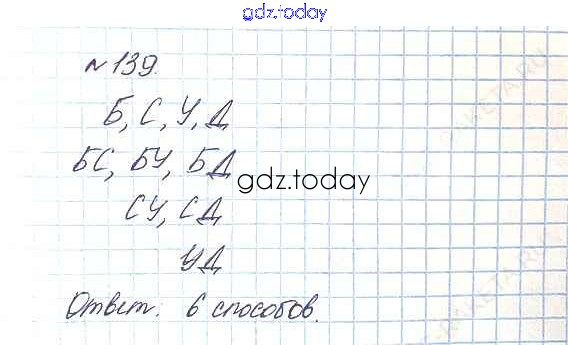 gdz.today
№139.
Б, С, У, Д
БС, БУ, БД
gdz.today
СУ, СД
УД
Ответ: 6 способов.